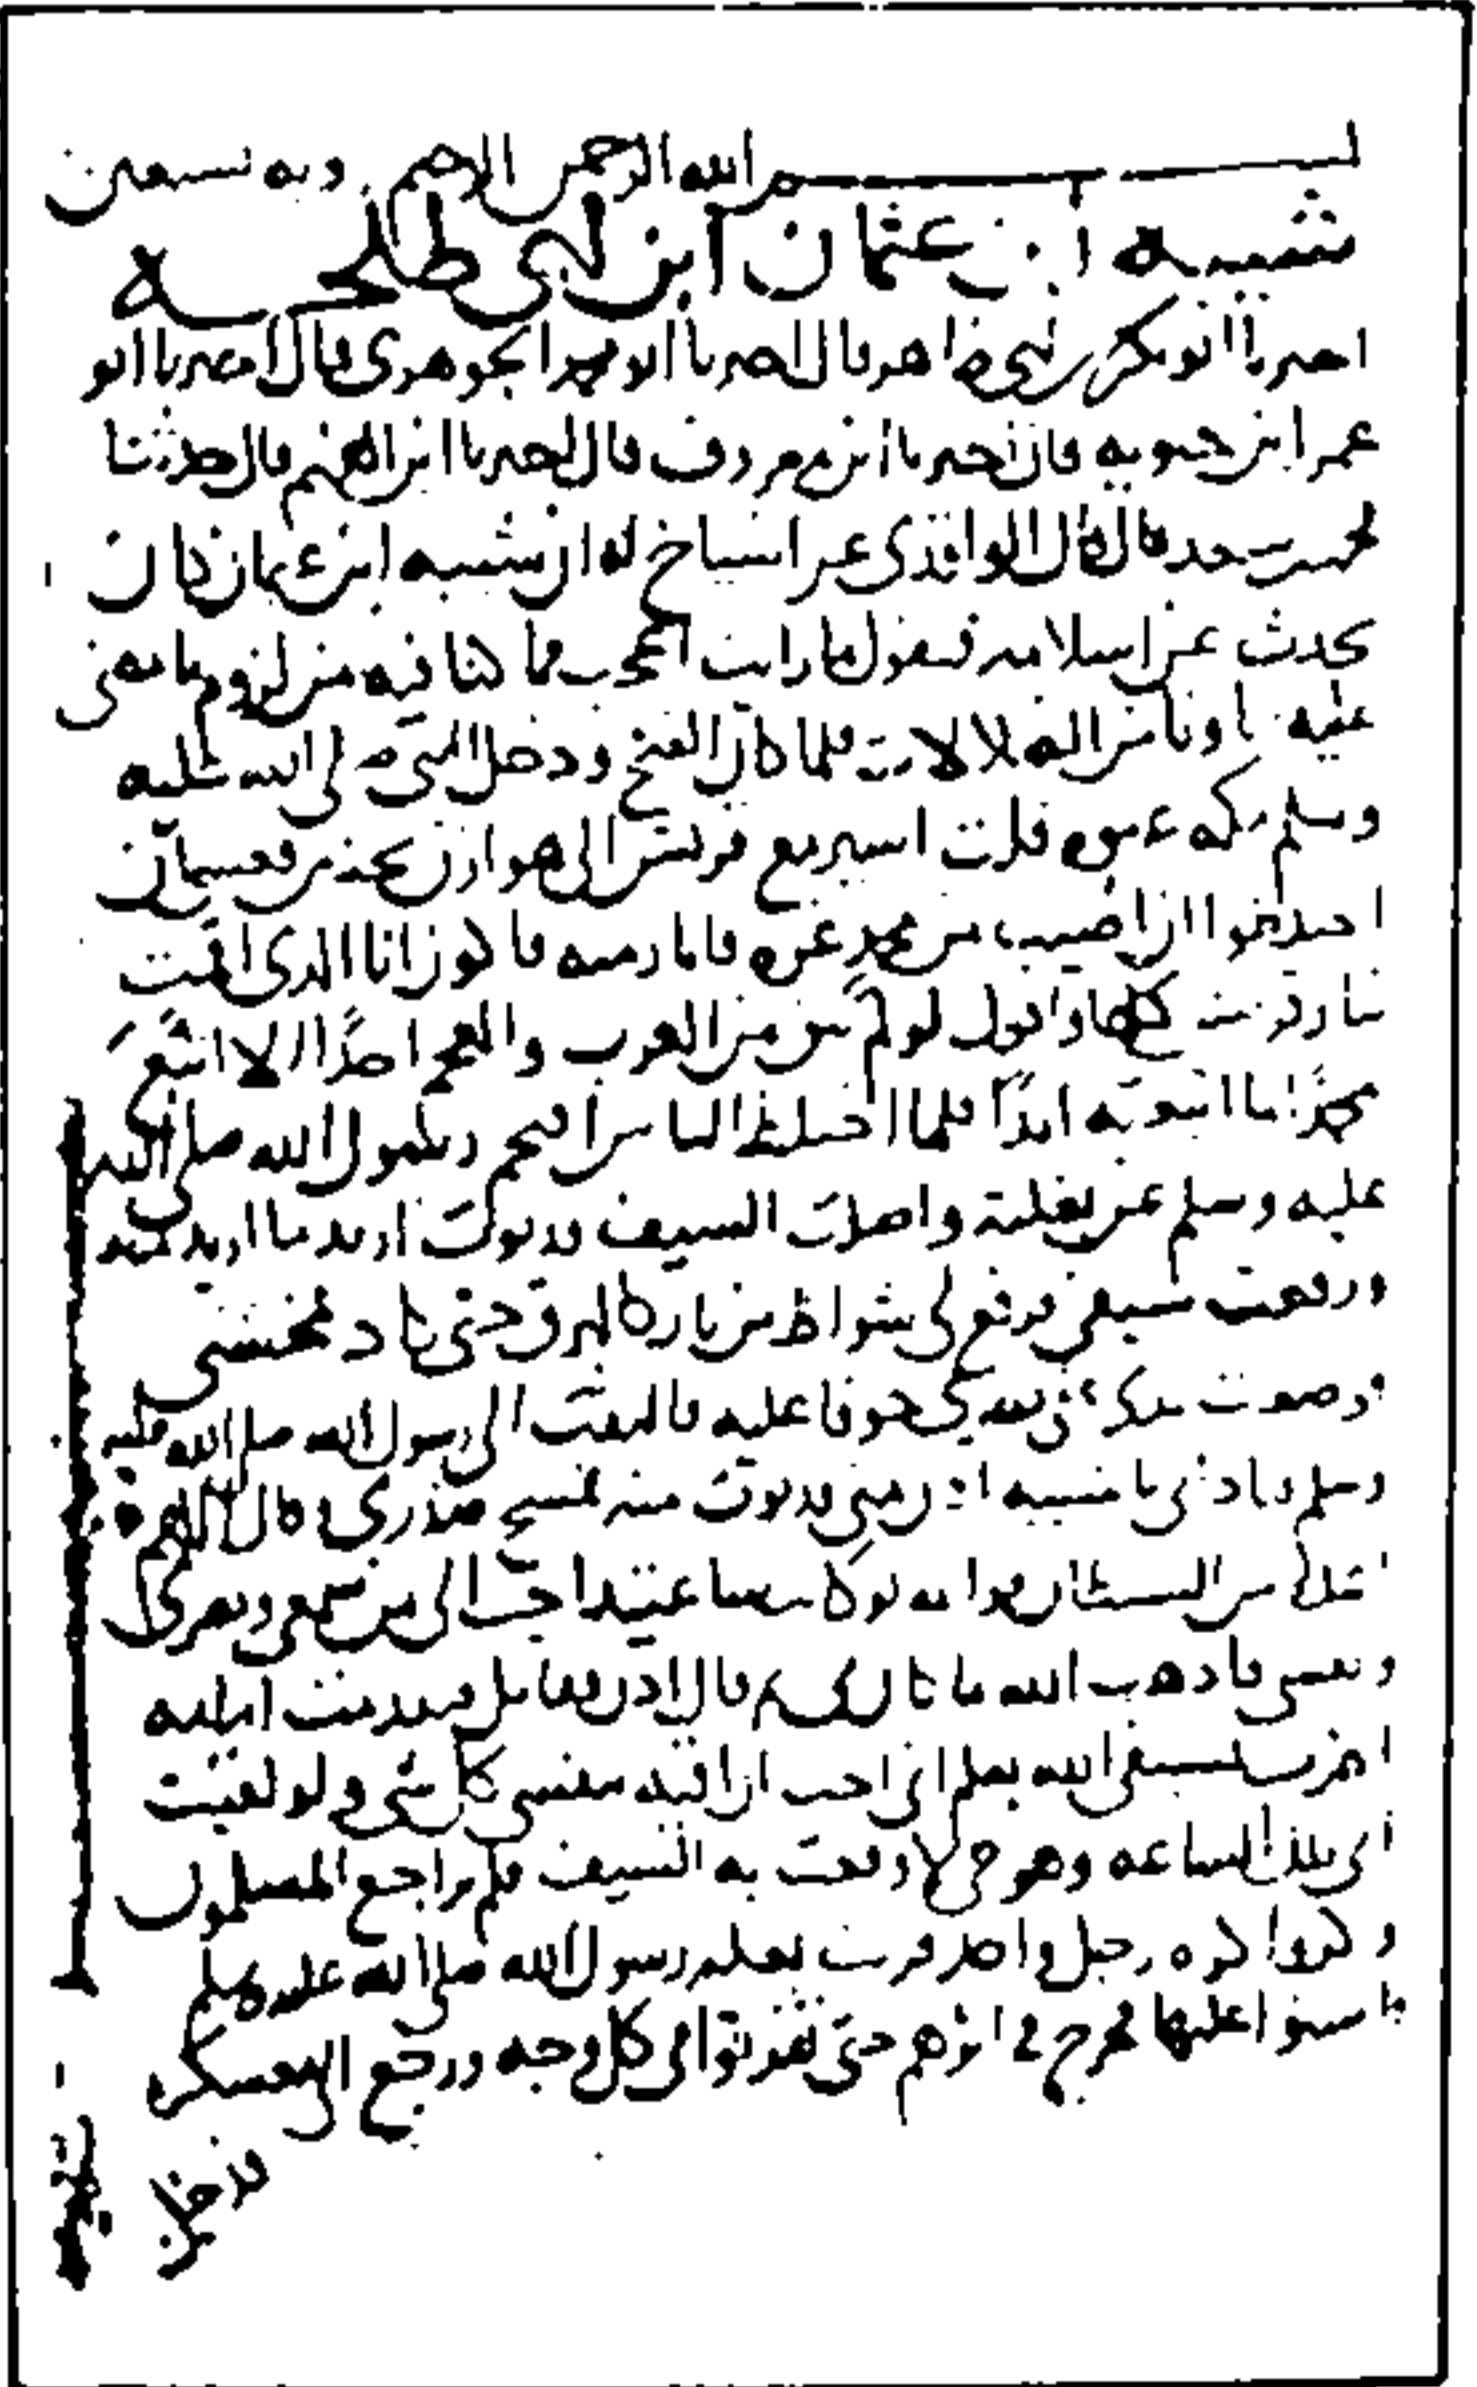 بسم الله الرحمن الرحيم وبه نستعين
شيبه ابن عثمان ابن ابي طلحه
اخبرنا ابو بكر بن ابي طاهر قال اخبرنا ابو محمد الجوهري قال اخبرنا ابو
عمر ابن حيويه قال اخبرنا ابن معروف قال اخبرنا ابن الفهم قال حدثنا
محمد بن سعد قال قال الواقدي عن اشياخ له ان شيبه ابن عثمان كان
يحدث عن اسلامه فيقول ما رايت اعجب مما كنا فيه من لزوم ما مضى
عليه اباونا من الضلالات فلما كان الفتح ودخل النبي صلى الله عليه
وسلم مكه عنوه قلت اسير مع قريش الى هوازن بحنين فعسى ان
اختلطوا ان اصيب من محمد غره فاثار منه فاكون انا الذي اقمت
بثار قريش كلها واقول لو لم يبق من العرب والعجم احدا الا اتبع
محمدا ما اتبعته ابدا فلما اختلط الناس اقتحم رسول الله صلى الله
عليه وسلم عن بغلته واصلت السيف فدنوت اريد ما اريد منه
ورفعت سيفي فرفع لي شواظ من نار كالبرق حتى كاد يمحشني
فوضعت يدي على بصري خوفا عليه فالتفت الي رسول الله صلى الله عليه
وسلم وناداني يا شيبه ادن مني فدنوت منه فمسح صدري وقال اللهم
اعذه من الشيطان فوالله لهو كان ساعتئذ احب الي من سمعي وبصري
ونفسي فاذهب الله ما كان بي ثم قال ادن فقاتل فتقدمت امامه
اضرب بسيفي الله يعلم اني احب ان اقيه بنفسي كل شي ولو لقيت
ابي تلك الساعه وهو حي لاوقعت به السيف فلم تراجع المسلمون
وكروا كره رجل واحد قربت بغله رسول الله صلى الله عليه وسلم
فاستوا عليها فخرج في اثرهم حتى تفرقوا في كل وجه ورجع الى معسكره
فدخل